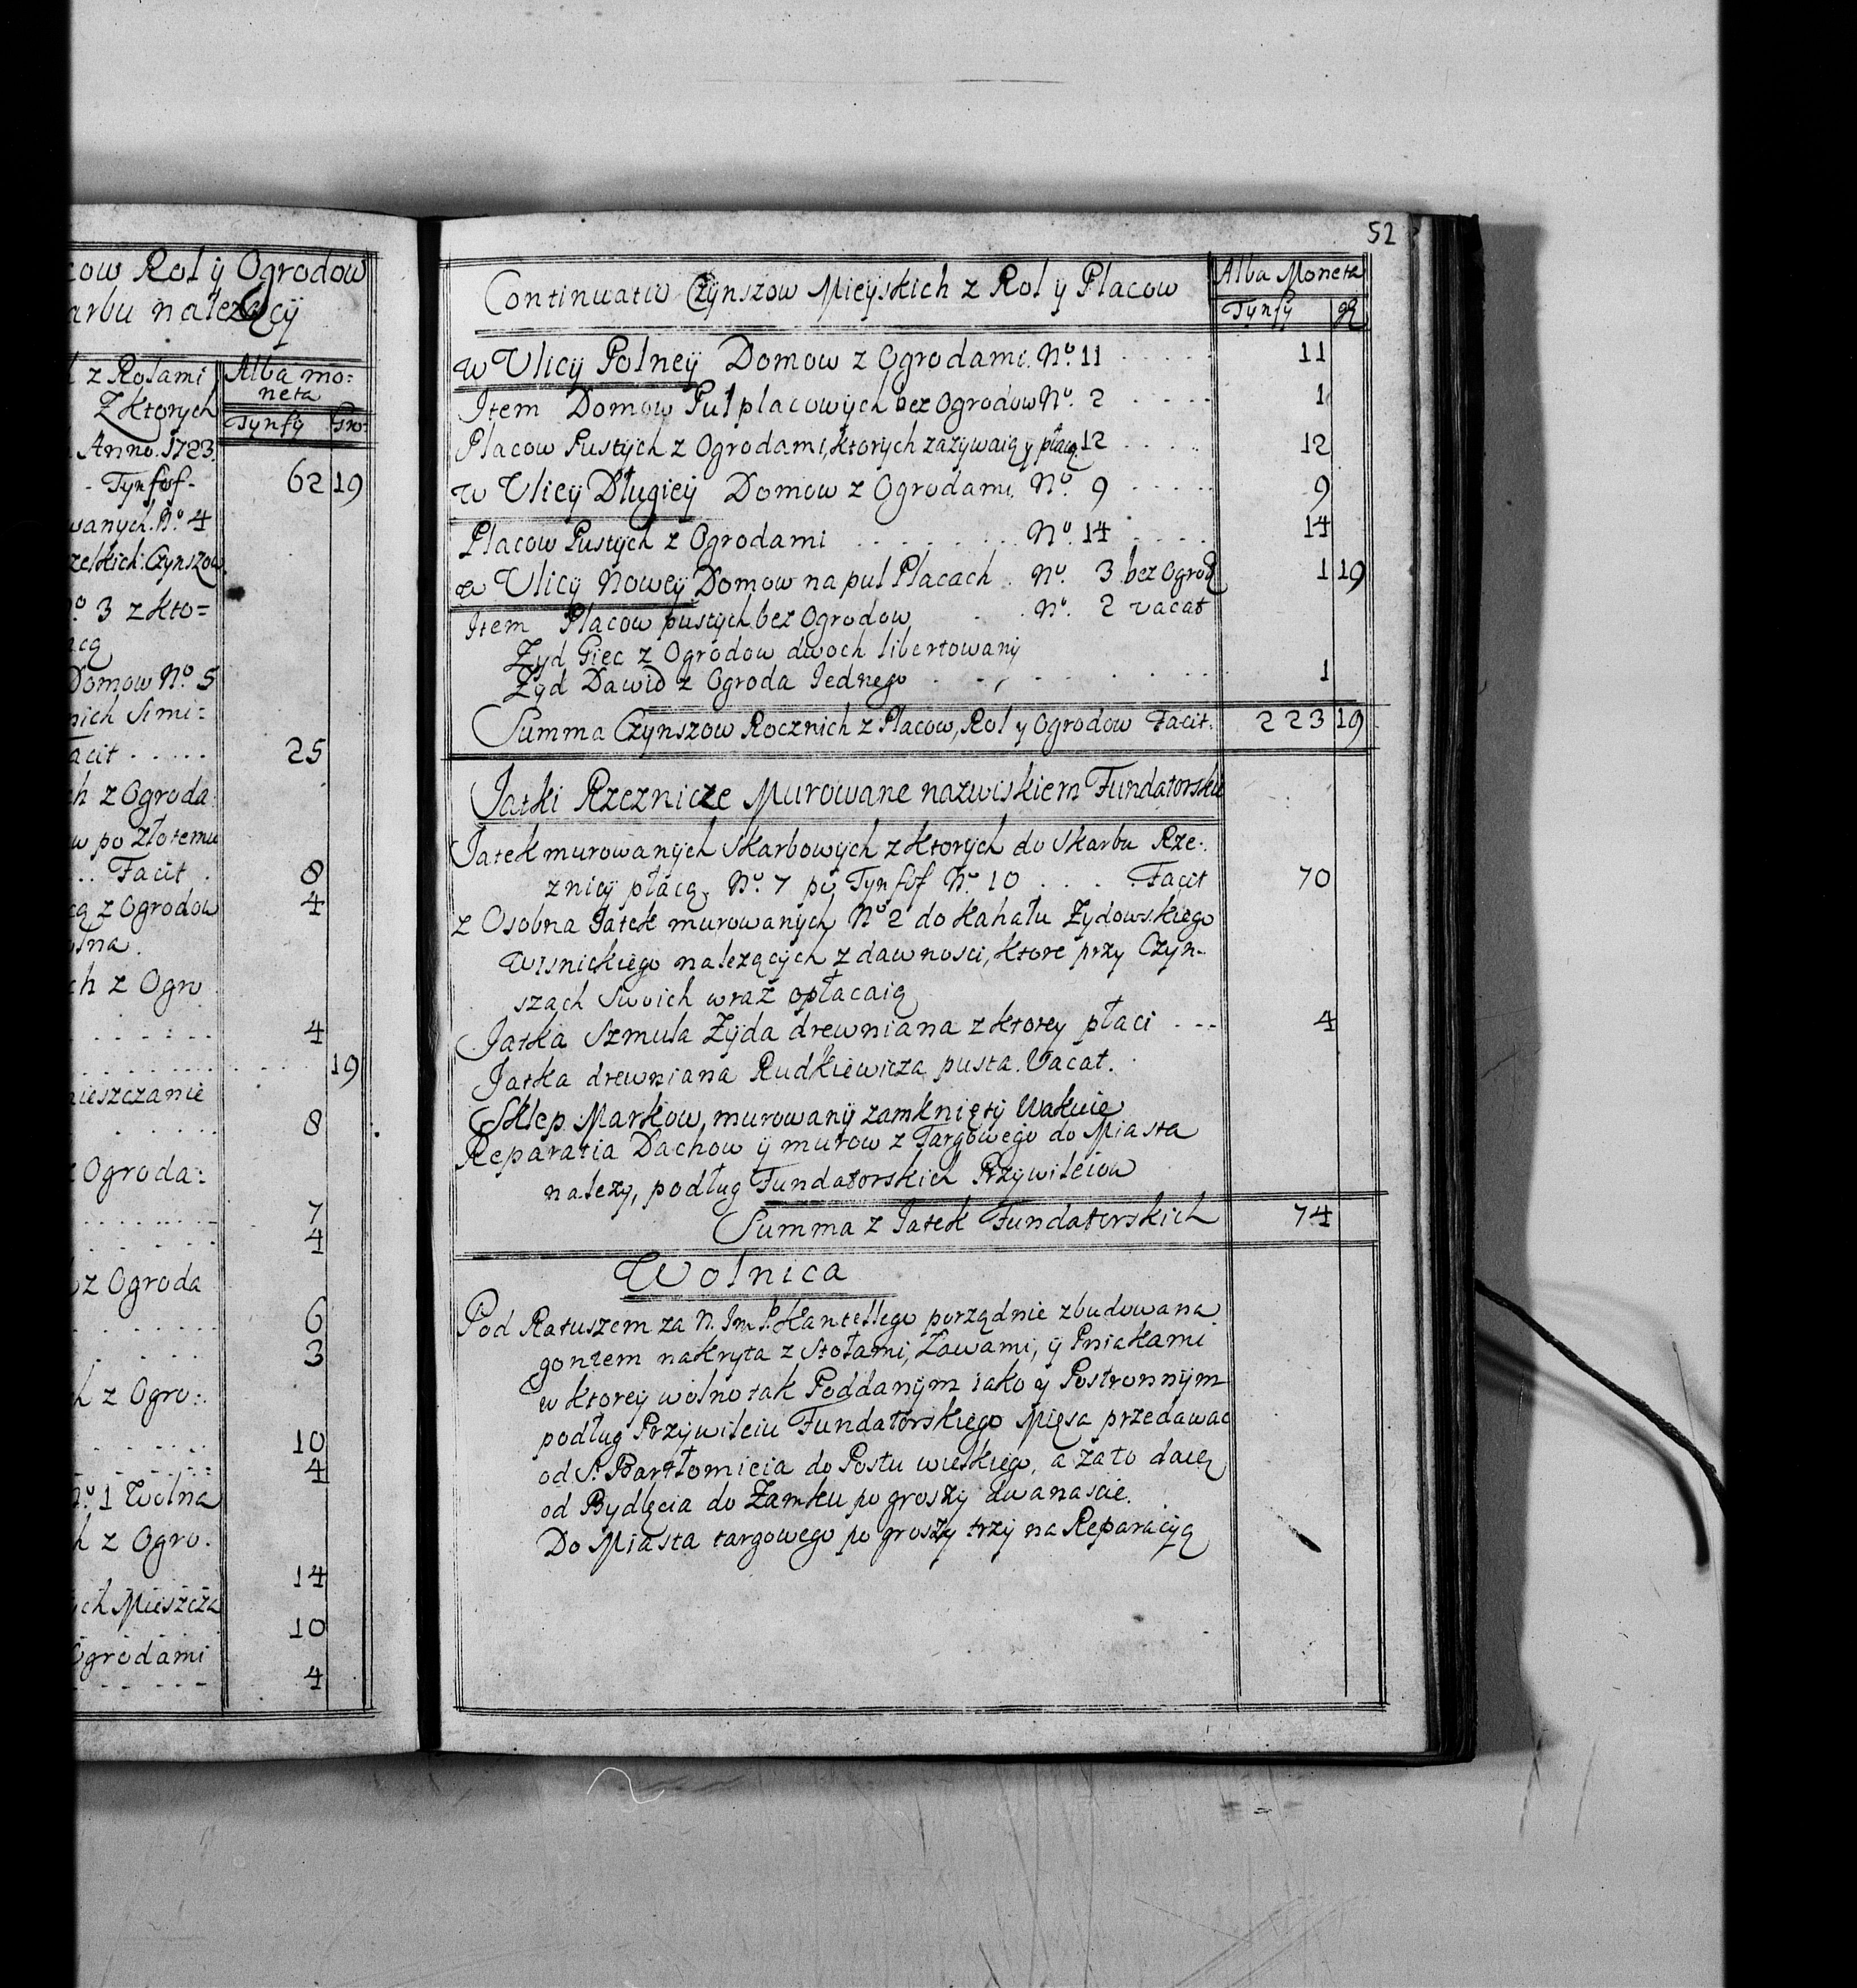 cow Rol y Ogrodow
arbu nalezącÿ
z Rolami Alba mo=
neta
Z ktorych
Tynfy Gro:
Anno. 1723.
- Tynfof - 62 19
wanych. No. 4
zelkich Czynszow
No 3 z kto=
acą
Domow No. 5
nich Simi=
acit . . . . . 25
ch z Ogroda
w po złotemu
.. Facit . 8
cą z Ogrodow 4
olna.
ch z Ogro
4
19
ieszczanie
8
z Ogroda:
7
4
z Ogroda
6
3
h z Ogro:
10
4
No. 1 Wolna
h z Ogro.
14
ych Mieszcza
10
Ogrodami
4
52
Continuatio Czynszow Mieyskich z Rol y Placow Alba Moneta
Tynfy gr
w Vlicy Polney Domow z Ogrodami. No. 11 . . . . . 11
Item Domow Puł placowych bez Ogrodow No. 2 . . . . . 1
Placow Pustych z Ogrodami, ktorych zazywaią y płacą 12 . . . . . 12
w Vlicy Długiey Domow z Ogrodami. No. 9 . . . . . 9
Placow Pustych z Ogrodami . . . . . . . No. 14 . . . . 14
w Vlicy Nowey Domow na puł Placach . No. 3 bez Ogrod 1 19
Item Placow pustych bez Ogrodow . . No. 2 vacat
Zyd Giec z Ogrodow dwoch libertowany
Zyd Dawid z Ogroda Iednego . . . . . . . . 1
Summa Czynszow Rocznich z Placow, Rol y Ogrodow Facit. 223 19
Jatki Rzeznicze Murowane nazwiskiem Fundatorskie
Jatek murowanych Skarbowych z ktorych do Skarbu Rze:
znicy płacą. No. 7 po Tynfof No. 10 . . . . Facit 70
z Osobna Jatek murowanych No 2 do Kahału Zydowskiego
Wisnickiego nalezących z dawnosci, ktore przy Czyn-
szach Swoich wraz opłacaią
Jatka Szmula Zyda drewniana z ktorey płaci . . . 4
Jatka drewniana Rudkiewicza pusta. Vacat.
Sklep Markow, murowany zamknięty Wakuie
Reparatia Dachow y murow z Targowego do Miasta
nalezy, podług Fundatorskich Przywileiow
Summa z Jatek Fundatorskich 74
Wolnica
Pod Ratuszem za N. Im P. Kantellego porządnie zbudowana
gontem nakryta z Stołami, Ławami, y Pniakami
w ktorey wolno tak Poddanym iako y Postronnym
podług Przywileiu Fundatorskiego Mięsa przedawac
od S. Bartłomieia do Postu wielkiego, a zato daią
od Bydlęcia do Zamku po groszy dwanascie.
Do Miasta targowego po groszy trzy na Reparacyą